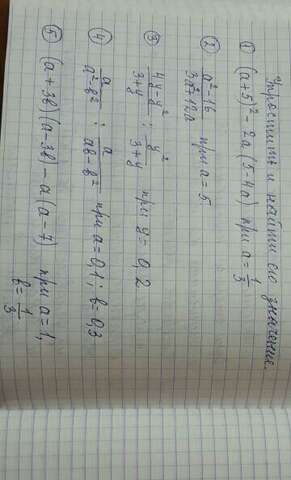 Упростить и найти его значение.
① (a+5)² - 2a(5-4a) при a = 1/3
② a²-16 / 3a²-12a при a = 5
③ 4y-y² / 3+y : y / 3+y при y = 0,2
④ a / a²-b² : a / ab-b² при a = 0,1; b = 0,3
⑤ (a+3b)(a-3b) - a(a-7) при a = 1,
b = 1/3